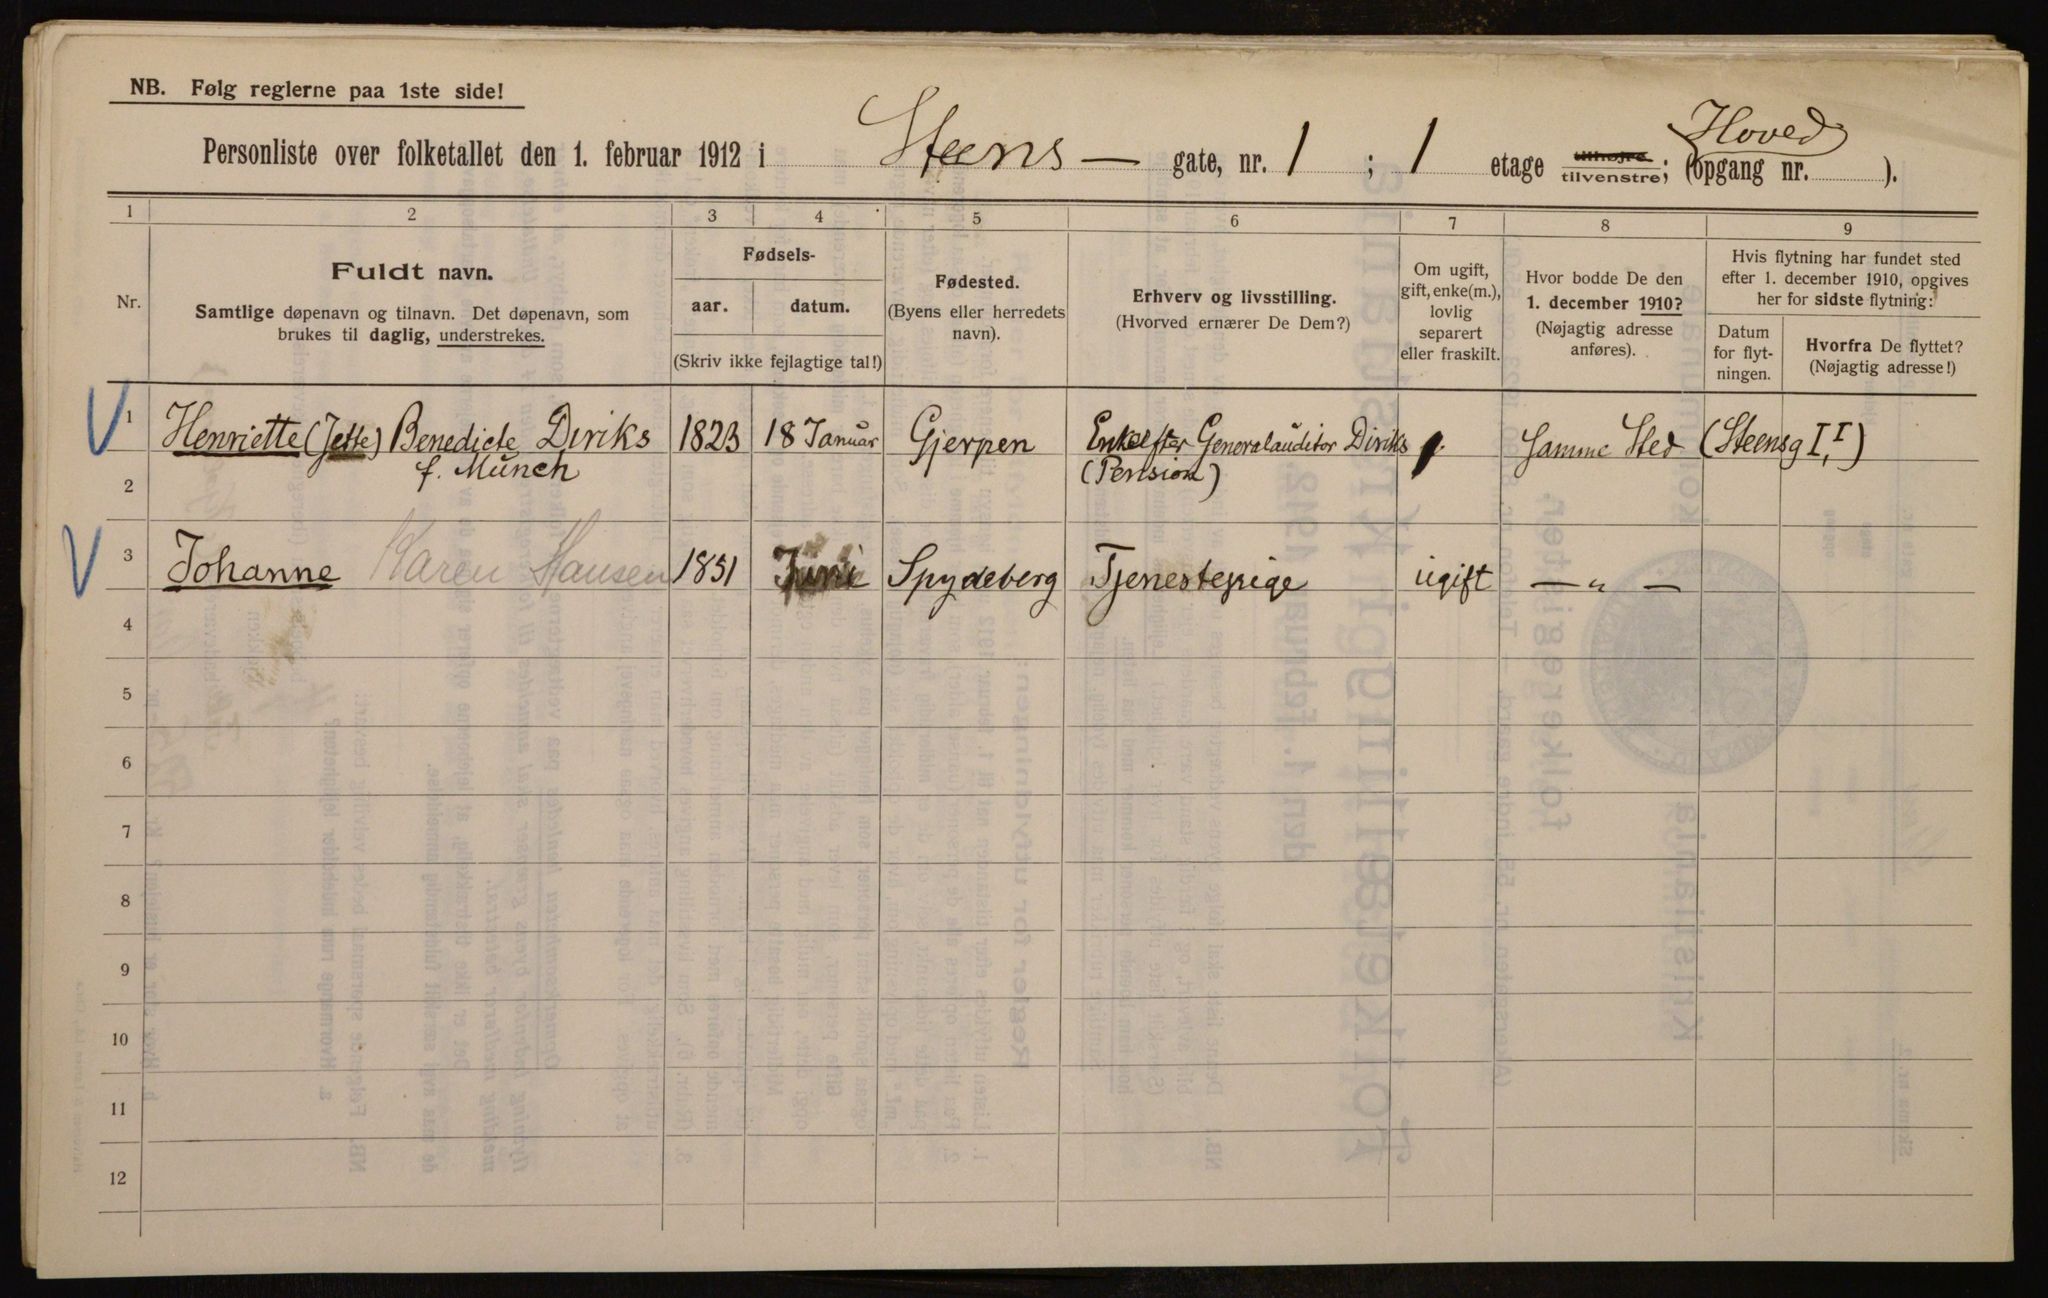 NB. Følg reglerne paa 1ste side!
Hoved
Personliste over folketallet den 1. februar 1912 i Steens — gate, nr. 1 ; 1 etage tilhøjre tilvenstre; (opgang nr. ).
1 2 3 4 5 6 7 8 9
Nr.
Fuldt navn.
Samtlige døpenavn og tilnavn. Det døpenavn, som
brukes til daglig, understrekes.
Fødsels-
aar. datum.
(Skriv ikke fejlagtige tal!)
Fødested.
(Byens eller herredets
navn).
Erhverv og livsstilling.
(Hvorved ernærer De Dem?)
Om ugift,
gift, enke(m.),
lovlig
separert
eller fraskilt.
Hvor bodde De den
1. december 1910?
(Nøjagtig adresse
anføres).
Hvis flytning har fundet sted
efter 1. december 1910, opgives
her for sidste flytning:
Datum
for flyt-
ningen.
Hvorfra De flyttet?
(Nøjagtig adresse!)
1 Henriette (Jette) Benedicte Diriks 1823 18 Januar Gjerpen Enke efter Generalauditor Diriks Samme Sted (Steensg I, I)
2 f. Munch (Pension)
3 Johanne Karen Hansen 1851 Juni Spydeberg Tjenestepige ugift — „ —
4
5
6
7
8
9
10
11
12